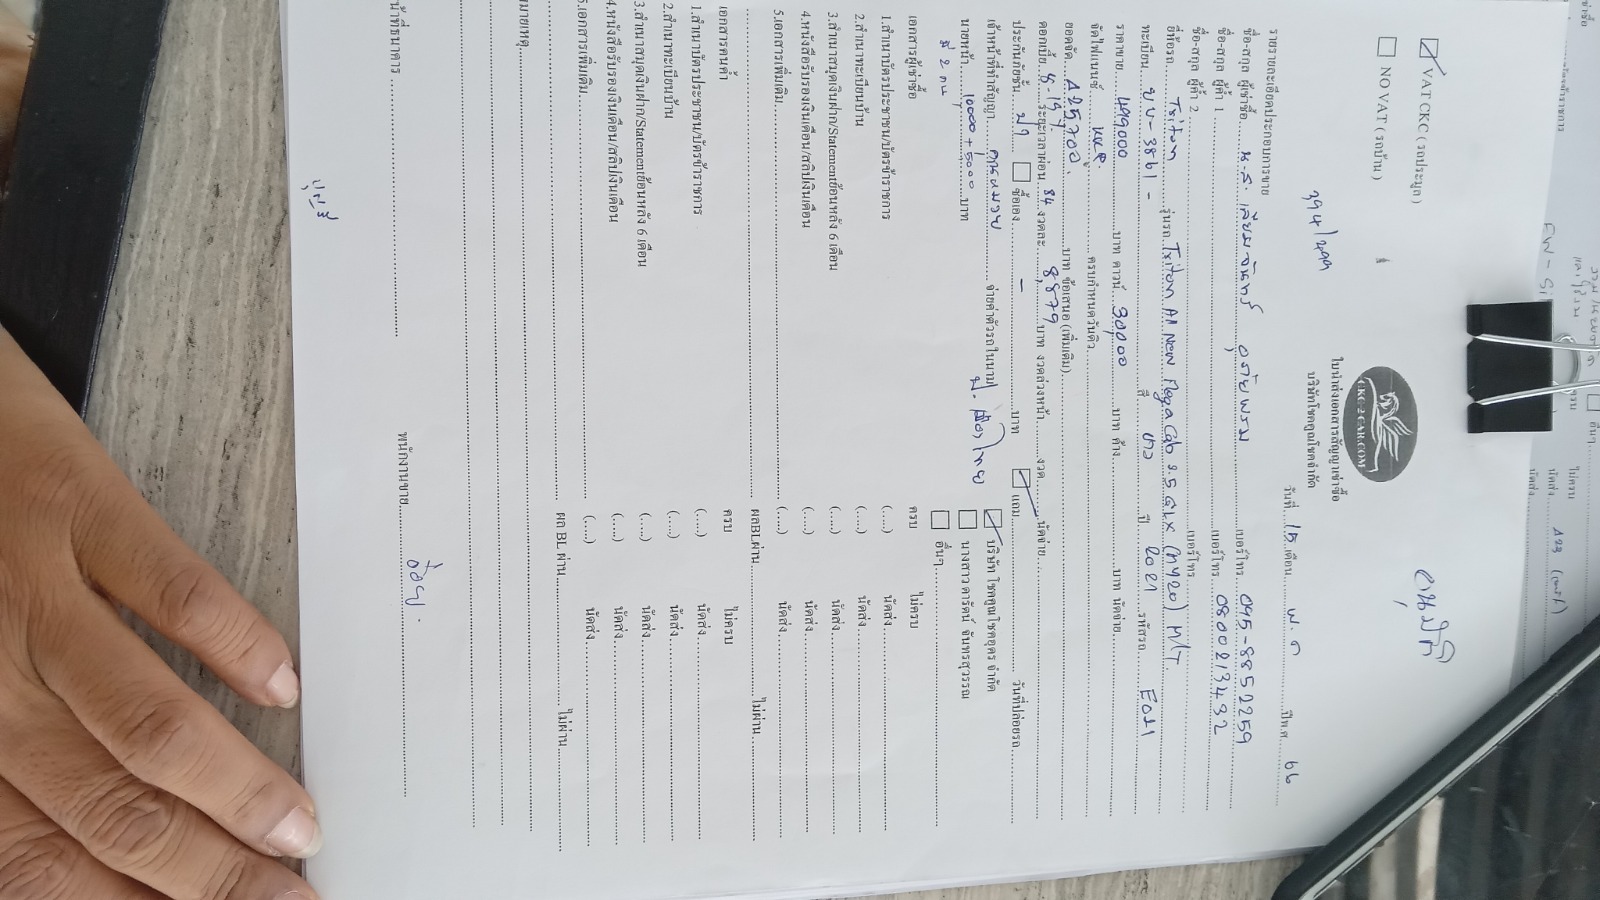 VAT CKC (รถประมูล)
NO VAT (รถบ้าน)
394/499
CKC-2-CAR.COM
ใบนำส่งเอกสารสัญญาเช่าซื้อ
บริษัทโชคคูณโชคจำกัด
อนุมัติ
วันที่ 15 เดือน พ.ค ปีพ.ศ. 66
รายรายละเอียดประกอบการขาย
ชื่อ-สกุล ผู้เช่าซื้อ น.ส. เบอร์โทร. 095-8852259
ชื่อ-สกุล ผู้ค้ำ 1 เบอร์โทร. 0800213432
ชื่อ-สกุล ผู้ค้ำ 2 เบอร์โทร.
ยี่ห้อรถ Triton รุ่นรถ Triton All New Mega Cab 2.5 GLX (MY20) M/T
ทะเบียน บบ-3861 - สี ขาว ปี 2021 รหัสรถ E051
ราคาขาย 499000 บาท ดาวน์ 30,000 บาท ค้าง บาท นัดจ่าย
จัดไฟแนนซ์ KKP ครบกำหนดวันคิว
ยอดจัด 525,700 บาท ข้อเสนอ (เพิ่มเติม)
ดอกเบี้ย ระยะเวลาผ่อน 84 งวดละ 8,879 บาท งวดล่วงหน้า งวด นัดจ่าย
ประกันภัยชั้น ป1 ซื้อเอง - บาท แถม วันที่ปล่อยรถ
เจ้าหน้าที่ทำสัญญา จ่ายค่าตัวรถในนาม บริษัท โชคคูณโชคอุดร จำกัด
นายหน้า 10000 + 5000 บาท นางสาวดารัตน์ จันทรสุวรรณ
มี 2 คน อื่นๆ
เอกสารผู้เช่าซื้อ ครบ ไม่ครบ
1.สำเนาบัตรประชาชน/บัตรข้าราชการ (....) นัดส่ง
2.สำเนาทะเบียนบ้าน (....) นัดส่ง
3.สำเนาสมุดเงินฝาก/Statementย้อนหลัง 6 เดือน (....) นัดส่ง
4.หนังสือรับรองเงินเดือน/สลิปเงินเดือน (....) นัดส่ง
5.เอกสารเพิ่มเติม (....) นัดส่ง
ผลBLผ่าน ไม่ผ่าน
เอกสารคนค้ำ ครบ ไม่ครบ
1.สำเนาบัตรประชาชน/บัตรข้าราชการ (....) นัดส่ง
2.สำเนาทะเบียนบ้าน (....) นัดส่ง
3.สำเนาสมุดเงินฝาก/Statementย้อนหลัง 6 เดือน (....) นัดส่ง
4.หนังสือรับรองเงินเดือน/สลิปเงินเดือน (....) นัดส่ง
5.เอกสารเพิ่มเติม (....) นัดส่ง
ผล BL ผ่าน ไม่ผ่าน
มายเหตุ
น้าที่ธนาคาร พนักงานขาย